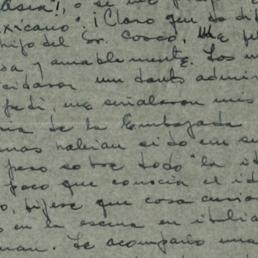 o se
xicano". ¡Claro que su di
hijo del Sr. Cosco. Me
sa, y amablemente. Los
cidaron un tanto admir
pedi, me señalaron mis
ma de la Embajada
mas habian sido en su
pero sobre todo "la id
poco que conocia el id
o, dijese que cosa curio
en la escena en italia
man. Le acompaño una